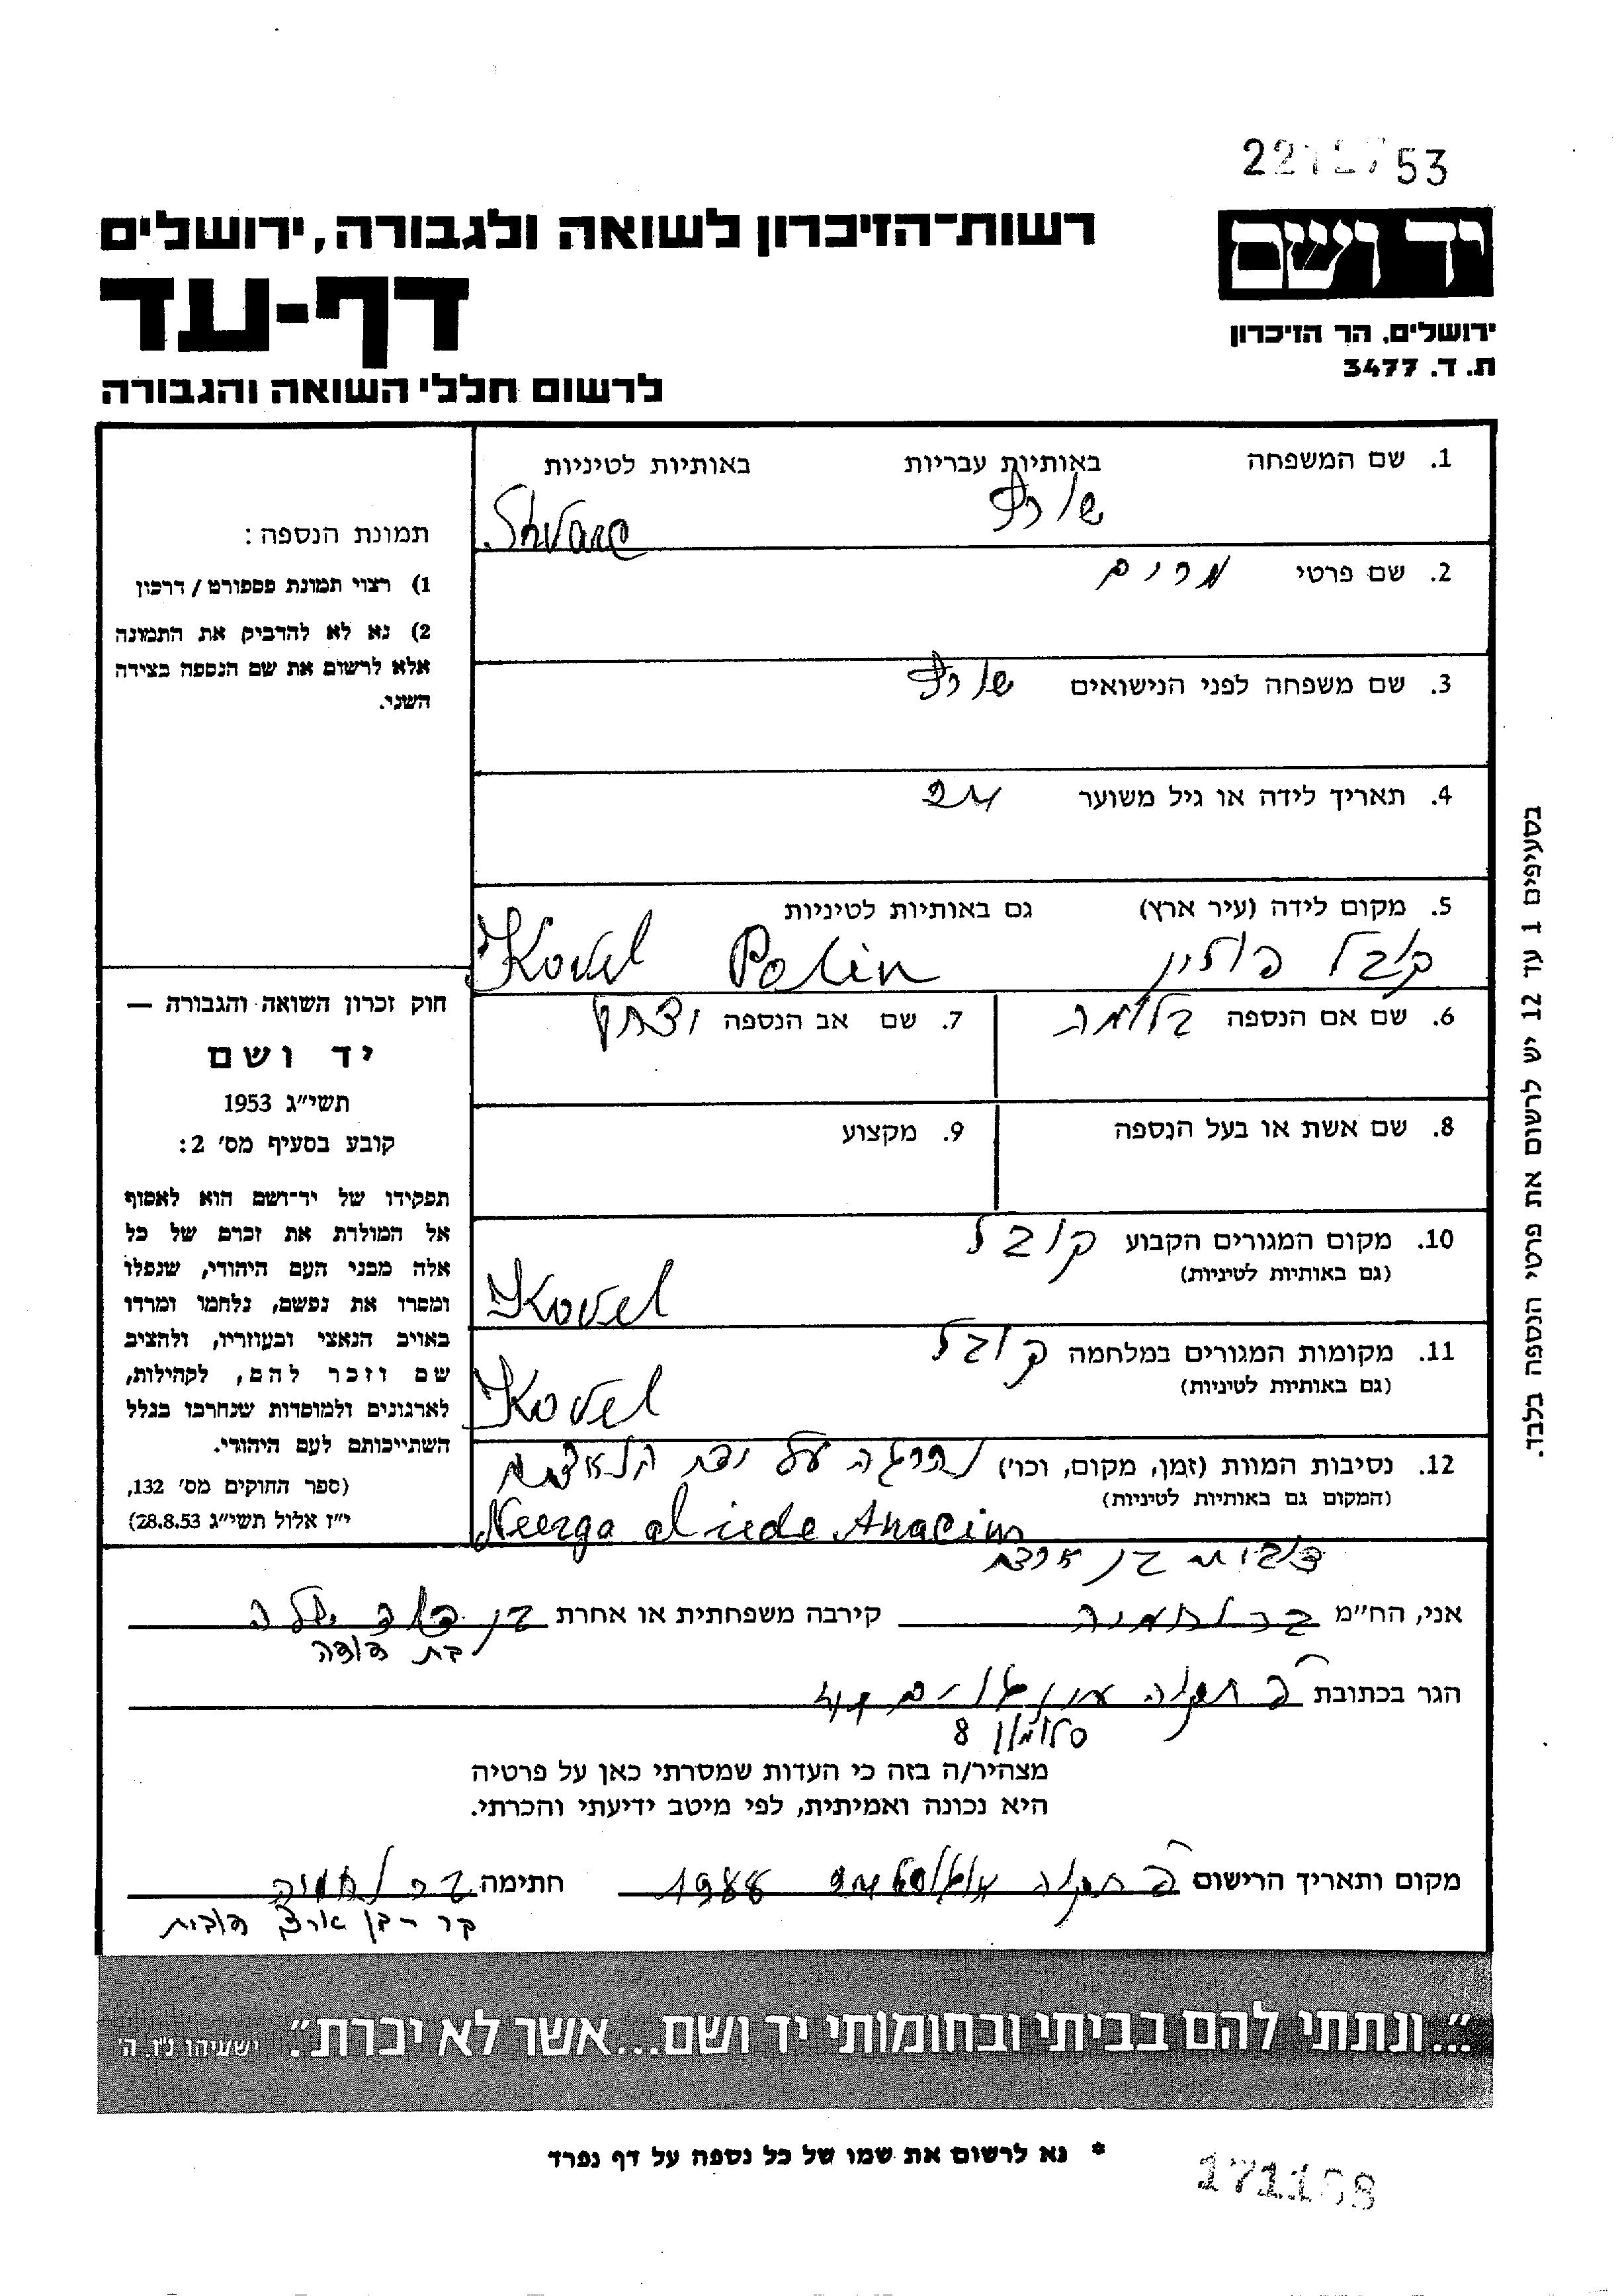 53
רשות־הזיכרון לשואה ולגבורה, ירושלים
יד ושם
דף-עד
ירושלים, הר הזיכרון
ת. ד. 3477
לרשום חללי השואה והגבורה
1. שם המשפחה באותיות עבריות באותיות לטיניות
שורץ Shvarc
2. שם פרטי מרים
3. שם משפחה לפני הנישואים שורץ
4. תאריך לידה או גיל משוער 24
5. מקום לידה (עיר ארץ) גם באותיות לטיניות
קובל פולין Polin Kovel
6. שם אם הנספה בלומה 7. שם אב הנספה יצחק
8. שם אשת או בעל הנספה 9. מקצוע
10. מקום המגורים הקבוע קובל
(גם באותיות לטיניות) Kovel
11. מקומות המגורים במלחמה קובל
(גם באותיות לטיניות) Kovel
12. נסיבות המוות (זמן, מקום, וכו') נהרגה על ידי הנאצים
(המקום גם באותיות לטיניות) Neerga al iede Anacim
תמונת הנספה:
1) רצוי תמונת פספורט / דרכון
2) נא לא להדביק את התמונה
אלא לרשום את שם הנספה בצידה
השני.
חוק זכרון השואה והגבורה —
יד ושם
תשי״ג 1953
קובע בסעיף מס׳ 2:
תפקידו של יד־ושם הוא לאסוף
אל המולדת את זכרם של כל
אלה מבני העם היהודי, שנפלו
ומסרו את נפשם, נלחמו ומרדו
באויב הנאצי ובעוזריו, ולהציב
שם וזכר להם, לקהילות,
לארגונים ולמוסדות שנחרבו בגלל
השתייכותם לעם היהודי.
(ספר החוקים מס׳ 132,
י״ז אלול תשי״ג 28.8.53)
בסעיפים 1 עד 12 יש לרשום את פרטי הנספה בלבד.
אני, הח״מ קירבה משפחתית או אחרת בן דוד
בת דודה
הגר בכתובת פ תקוה
סלומון 8
מצהיר/ה בזה כי העדות שמסרתי כאן על פרטיה
היא נכונה ואמיתית, לפי מיטב ידיעתי והכרתי.
מקום ותאריך הרישום פ תקוה 1988 חתימה
״...ונתתי להם בביתי ובחומותי יד ושם...אשר לא יכרת״. ישעיהו נ״ו. ה׳
* נא לרשום את שמו של כל נספה על דף נפרד